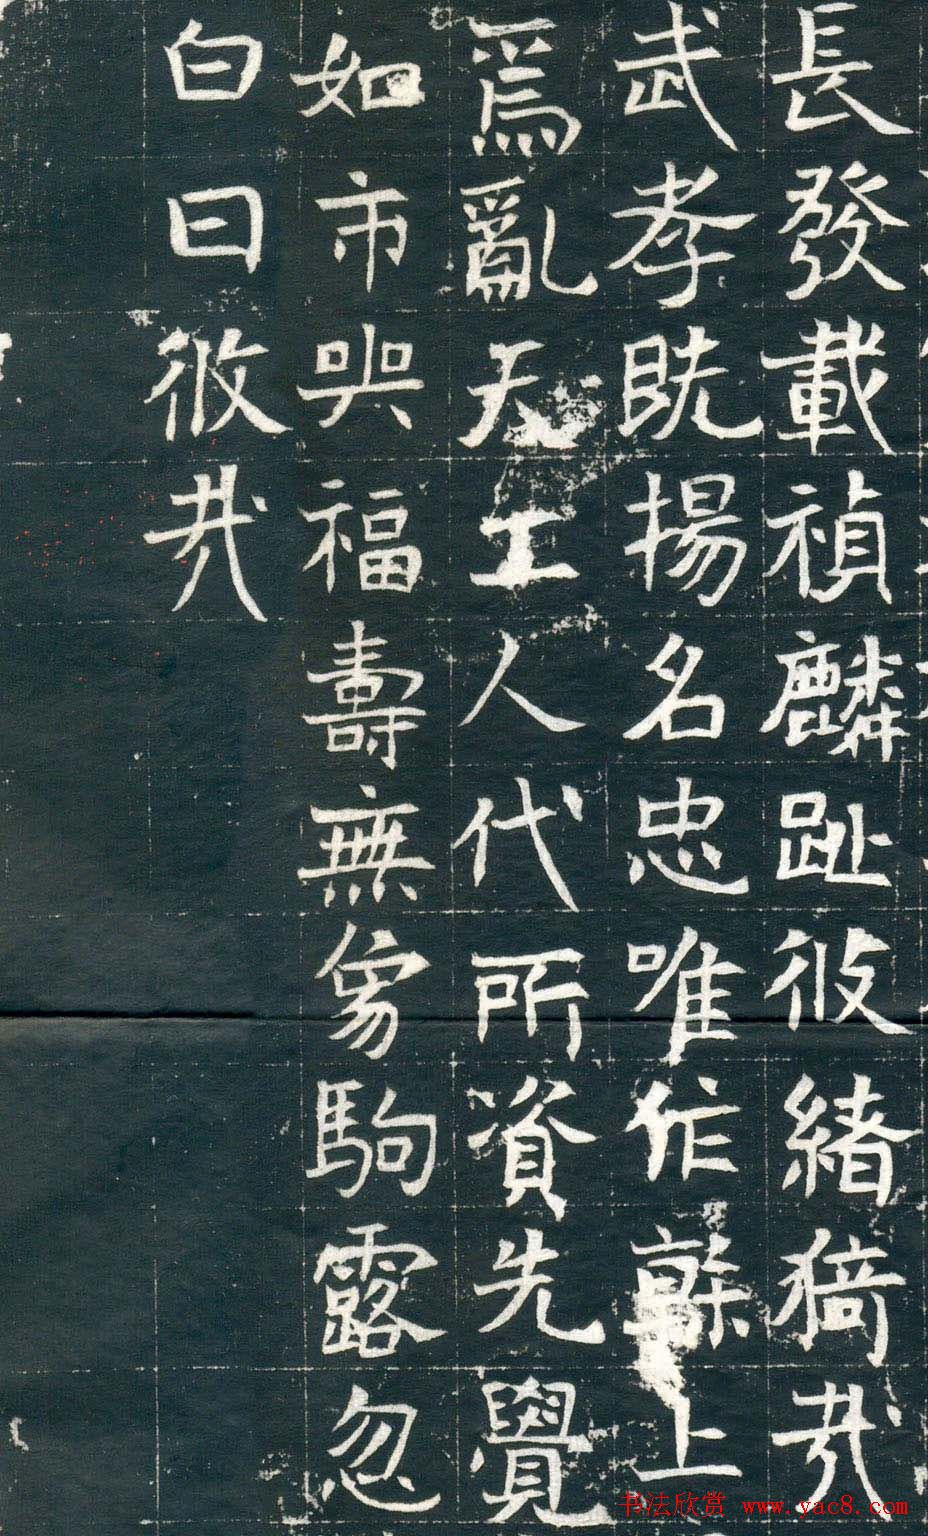 長發載禎麟趾攸緒猗哉
武孝既揚名忠唯作幹上
爲亂天工人代所資先覺
如市與福壽無象駒露忽
白日攸哉
书法欣赏 www.yac8.com